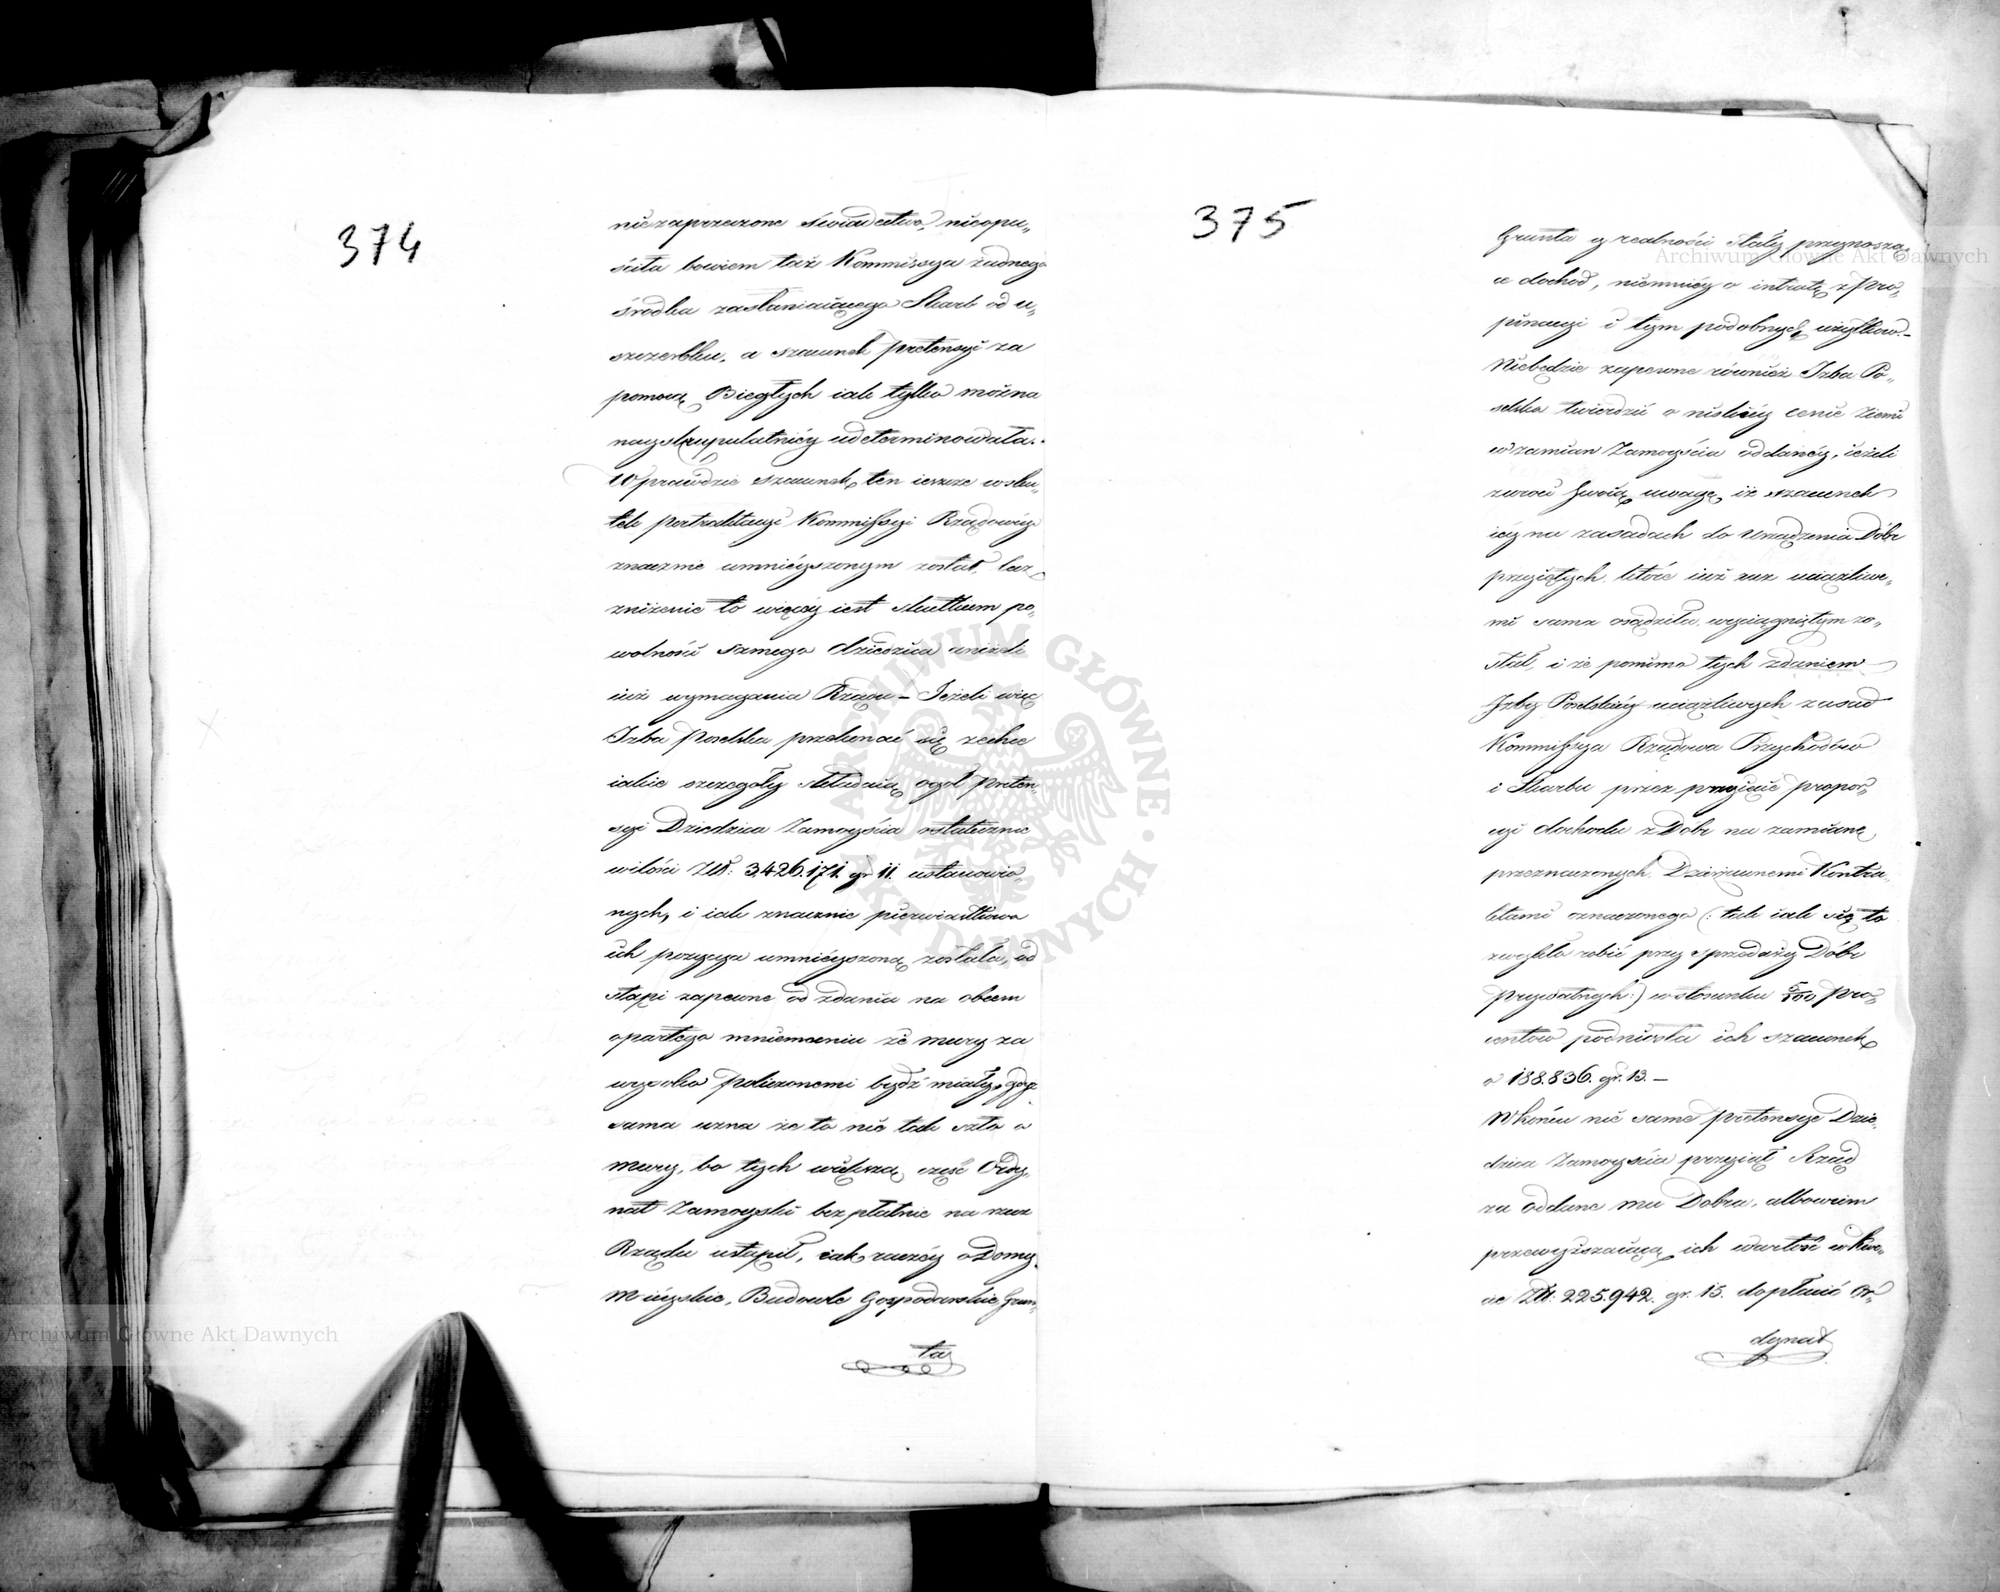 374
niezaprzeczone świadectwo, nieopu„
ściła bowiem taż Kommissya żadnego
środka zasłaniaiącego Skarb od u„
szczerbku, a szacunek pretensyi za
pomocą Biegłych iak tylko można
nayskrupulatniéy udeterminowała.
Wprawdzie szacunek ten ieszcze wsku„
tek pertraktacyi Kommissyi Rządowéy
znacznie umnieyszonym został, lecz
zniżenie to więcéy iest skutkiem po„
wolności samego dziedzica aniżeli
iuż wymagania Rządu – Jeżeli więc
Izba Poselska przekonać się zechce
iakie szczegóły składaią ogół preten„
syi Dziedzica Zamoyścia ostatecznie
wilości Złt: 3.426.171. gr 11. ustanowio„
nych, i iak znacznie pierwiastkowa
ich pozycya umnieyszoną została, od
stąpi zapewne od zdania na obcem
opartego mniemaniu że mury za
wysoko policzonemi bydź miały, gdyż
sama uzna że to nie tak szło o
mury, bo tych większą część Ordy„
nat Zamoyski bezpłatnie na rzecz
Rządu ustąpił, iak raczéy o Domy
Mieyskie, Budowle Gospodarskie, Grun„
ta
375
Grunta y realności stały przynoszą„
ce dochód, niemniéy o intratę z Pro„
pinacyi i tym podobnych użytków. –
Niebędzie zapewne również Izba Po„
selska twierdzić o niskiéy cenie Ziemi
wzamian Zamoyścia oddanéy, ieżeli
zwróci Swoią uwagę iż szacunek
iéy na zasadach do Urządzenia Dóbr
przyiętych, które iuż raz uciążliwe„
mi sama osądziła, wyciągniętym zo„
stał, i że pomimo tych zdaniem
Izby Poselskiéy uciążliwych zasad
Kommissya Rządowa Przychodów
i Skarbu przez przyięcie propor„
cyi dochodu z Dóbr na zamianę
przeznaczonych, Dzierżawnemi Kontra„
ktami oznaczonego (: tak iak się to
zwykło robić przy sprzedaży Dóbr
prywatnych :) w stosunku 5/100 pro„
centów podniosła ich szacunek
o 188.836. gr. 13. –
Wkońcu nie same pretensye Dzie„
dzica Zamoyścia przyiął Rząd
za oddane mu Dobra, albowiem
przewyższaiącą ich wartość w kwo„
cie Złt: 225.942. gr. 15. dopłacić Or„
dynat
Archiwum Główne Akt Dawnych
Archiwum Główne Akt Dawnych
ARCHIWUM GŁÓWNE AKT DAWNYCH